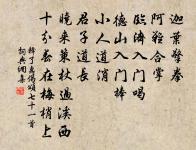 迦葉擎拳
阿難合掌
臨濟入門喝
德山入門棒
小人道消
君子道長
曉來策杖過溪西
十分春在梅梢上
釋了惠偈頌七十一首
詞典網集